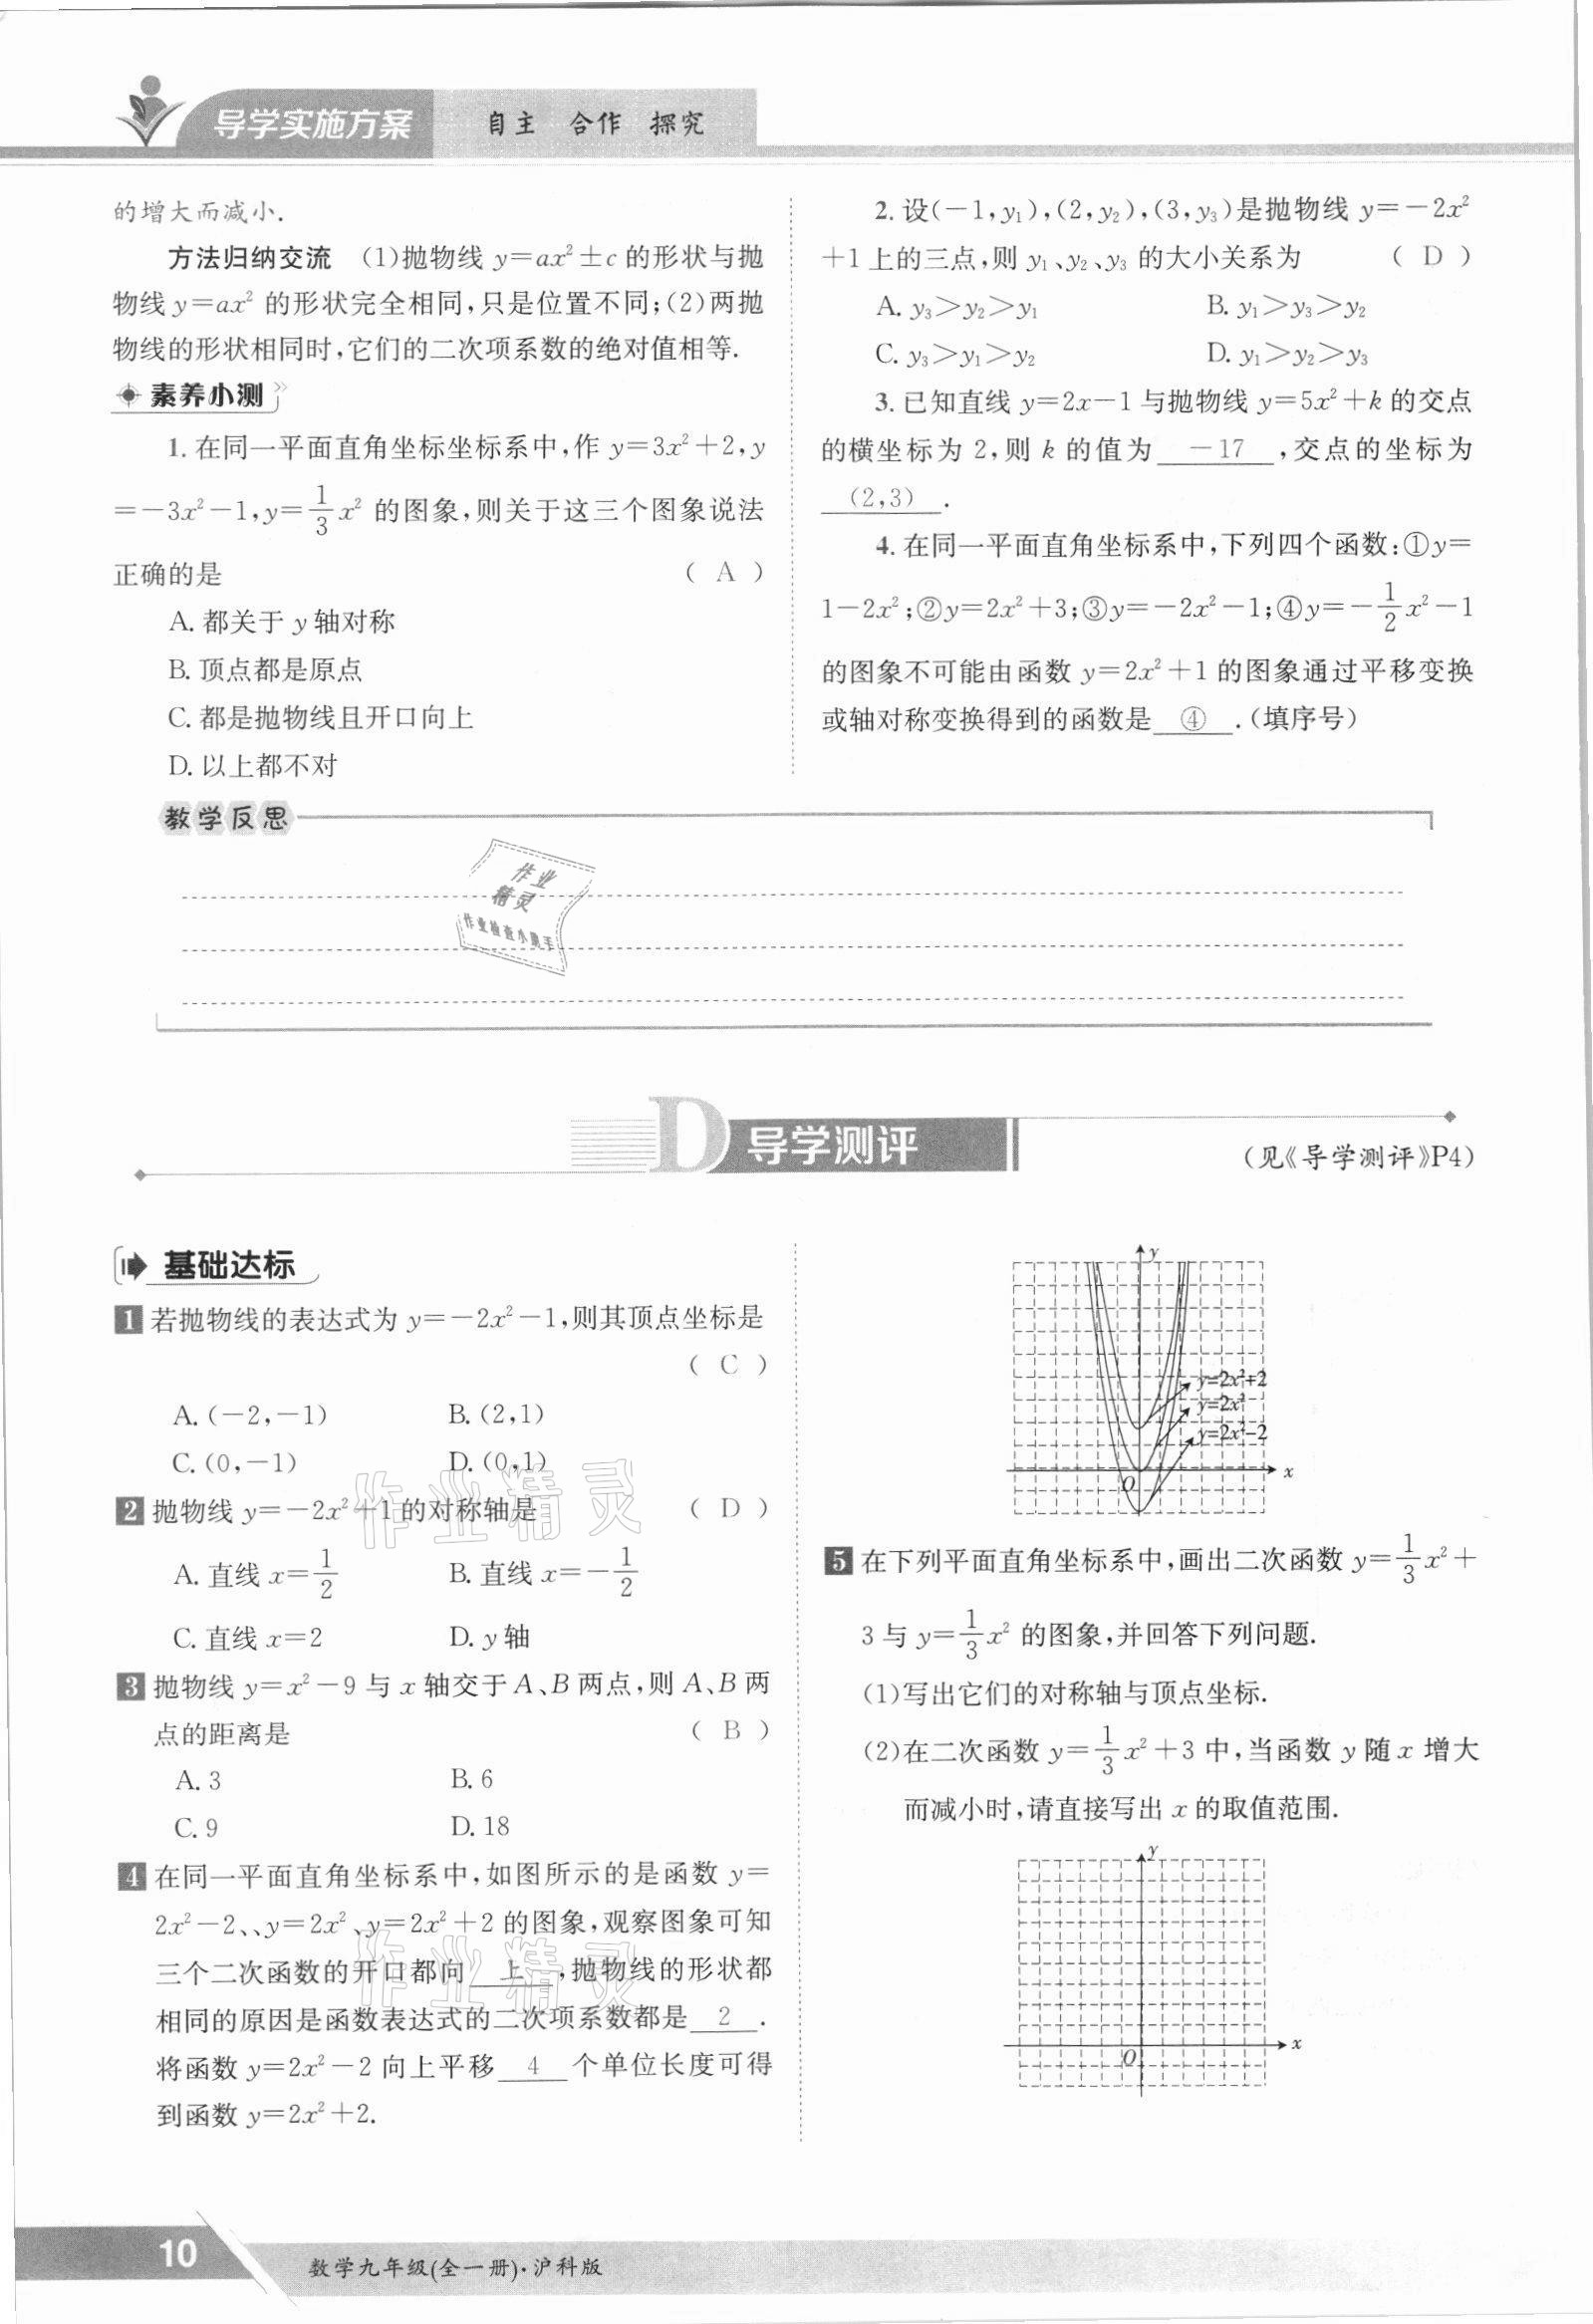 导学实施方案 自主 合作 探究
的增大而减小.
方法归纳交流 (1)抛物线 y=ax²±c 的形状与抛
物线 y=ax² 的形状完全相同,只是位置不同;(2)两抛
物线的形状相同时,它们的二次项系数的绝对值相等.
素养小测
1. 在同一平面直角坐标坐标系中,作 y=3x²+2,y
=-3x²-1,y=1/3x² 的图象,则关于这三个图象说法
正确的是 ( A )
A. 都关于 y 轴对称
B. 顶点都是原点
C. 都是抛物线且开口向上
D. 以上都不对
2. 设(-1,y₁),(2,y₂),(3,y₃)是抛物线 y=-2x²
+1 上的三点,则 y₁、y₂、y₃ 的大小关系为 ( D )
A. y₃>y₂>y₁ B. y₁>y₃>y₂
C. y₃>y₁>y₂ D. y₁>y₂>y₃
3. 已知直线 y=2x-1 与抛物线 y=5x²+k 的交点
的横坐标为 2,则 k 的值为 -17 ,交点的坐标为
(2,3) .
4. 在同一平面直角坐标系中,下列四个函数:①y=
1-2x²;②y=2x²+3;③y=-2x²-1;④y=-1/2x²-1
的图象不可能由函数 y=2x²+1 的图象通过平移变换
或轴对称变换得到的函数是 ④ .(填序号)
教学反思
作业
精灵
作业检查小助手
D 导学测评
(见《导学测评》P4)
基础达标
1 若抛物线的表达式为 y=-2x²-1,则其顶点坐标是
( C )
A. (-2,-1) B. (2,1)
C. (0,-1) D. (0,1)
2 抛物线 y=-2x²+1 的对称轴是 ( D )
A. 直线 x=1/2 B. 直线 x=-1/2
C. 直线 x=2 D. y 轴
3 抛物线 y=x²-9 与 x 轴交于 A、B 两点,则 A、B 两
点的距离是 ( B )
A. 3 B. 6
C. 9 D. 18
4 在同一平面直角坐标系中,如图所示的是函数 y=
2x²-2、、y=2x²、y=2x²+2 的图象,观察图象可知
三个二次函数的开口都向 上 ,抛物线的形状都
相同的原因是函数表达式的二次项系数都是 2 .
将函数 y=2x²-2 向上平移 4 个单位长度可得
到函数 y=2x²+2.
作业精灵
作业精灵
y
y=2x²+2
y=2x²
y=2x²-2
O x
5 在下列平面直角坐标系中,画出二次函数 y=1/3x²+
3 与 y=1/3x² 的图象,并回答下列问题.
(1)写出它们的对称轴与顶点坐标.
(2)在二次函数 y=1/3x²+3 中,当函数 y 随 x 增大
而减小时,请直接写出 x 的取值范围.
y
O x
10 数学九年级(全一册)·沪科版